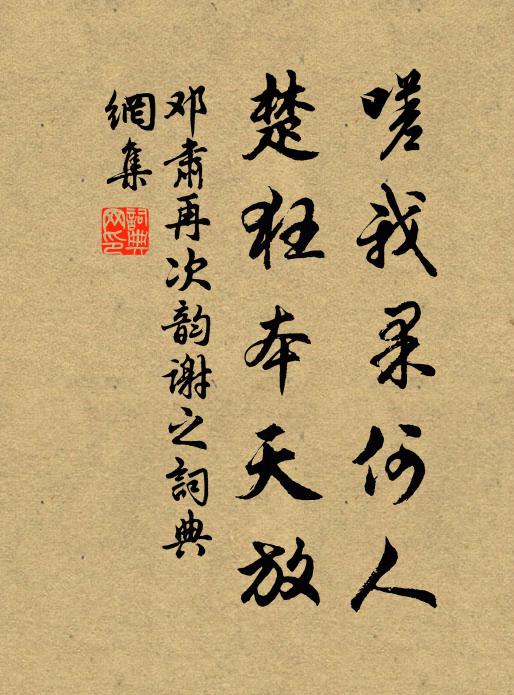 嗟我果何人
楚狂本天放
邓肅再次韵谢之詞典
網集
詞典网印